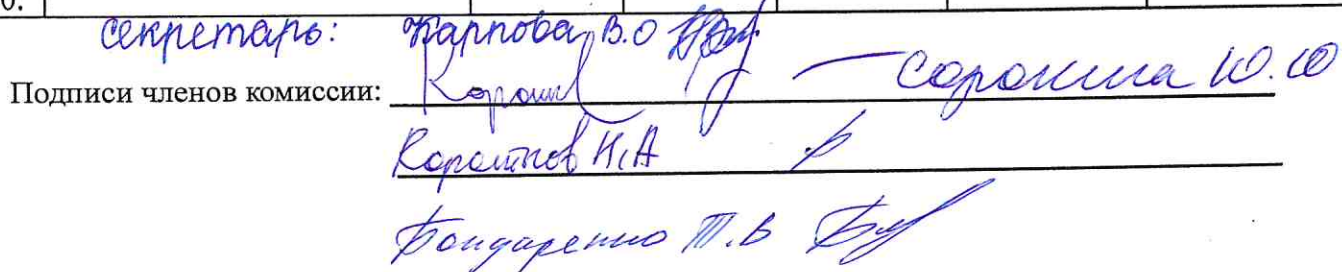 0.
секретарь: Карпова В.О
Подписи членов комиссии: Сорокина Ю.Ю
Коротков Н.А
Бондаренко Т.В